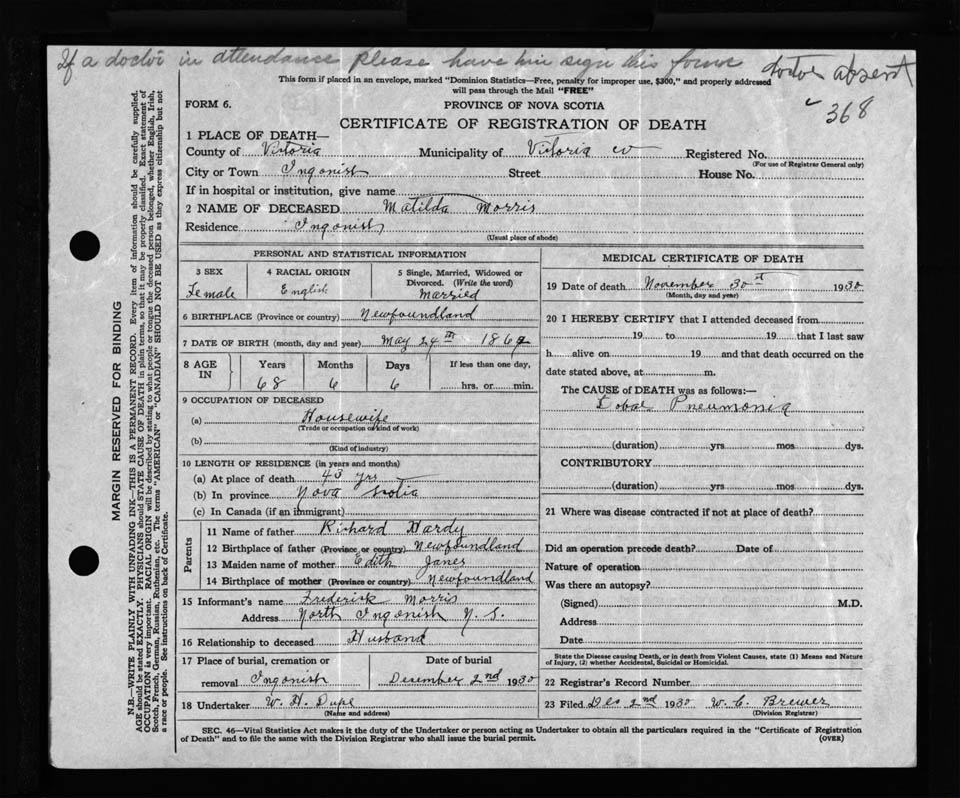 If a doctor in attendance please have him sign this form doctor absent
This form if placed in an envelope, marked "Dominion Statistics—Free, penalty for improper use, $300," and properly addressed
will pass through the Mail "FREE"
368
FORM 6. PROVINCE OF NOVA SCOTIA
CERTIFICATE OF REGISTRATION OF DEATH
1 PLACE OF DEATH—
County of Victoria Municipality of Victoria co Registered No.
(For use of Registrar General only)
City or Town Ingonish Street House No.
If in hospital or institution, give name
2 NAME OF DECEASED Matilda Morris
Residence Ingonish
(Usual place of abode)
PERSONAL AND STATISTICAL INFORMATION
3 SEX 4 RACIAL ORIGIN 5 Single, Married, Widowed or
Divorced. (Write the word)
Female English Married
6 BIRTHPLACE (Province or country) Newfoundland
7 DATE OF BIRTH (month, day and year) May 24th 1862
8 AGE IN Years Months Days If less than one day,
68 6 6 hrs. or min.
9 OCCUPATION OF DECEASED
(a) Housewife
(Trade or occupation or kind of work)
(b)
(Kind of industry)
10 LENGTH OF RESIDENCE (in years and months)
(a) At place of death 43 yrs
(b) In province Nova Scotia
(c) In Canada (if an immigrant)
Parents
11 Name of father Richard Hardy
12 Birthplace of father (Province or country) Newfoundland
13 Maiden name of mother Edith Janes
14 Birthplace of mother (Province or country) Newfoundland
15 Informant's name Frederick Morris
Address North Ingonish N. S.
16 Relationship to deceased Husband
17 Place of burial, cremation or Date of burial
removal Ingonish December 2nd 1930
18 Undertaker W. H. Dupe
(Name and address)
MEDICAL CERTIFICATE OF DEATH
19 Date of death November 30st 1930
(Month, day and year)
20 I HEREBY CERTIFY that I attended deceased from
19 to 19 that I last saw
h alive on 19 and that death occurred on the
date stated above, at m.
The CAUSE of DEATH was as follows:—
Lobar Pneumonia
(duration) yrs mos dys.
CONTRIBUTORY
(duration) yrs. mos. dys.
21 Where was disease contracted if not at place of death?
Did an operation precede death? Date of
Nature of operation
Was there an autopsy?
(Signed) M.D.
Address
Date
State the Disease causing Death, or in death from Violent Causes, state (1) Means and Nature
of Injury, (2) whether Accidental, Suicidal or Homicidal.
22 Registrar's Record Number
23 Filed Dec 2nd 1930 W. C. Brewer
(Division Registrar)
SEC. 46—Vital Statistics Act makes it the duty of the Undertaker or person acting as Undertaker to obtain all the particulars required in the "Certificate of Registration
of Death" and to file the same with the Division Registrar who shall issue the burial permit. (OVER)
MARGIN RESERVED FOR BINDING
N.B.—WRITE PLAINLY WITH UNFADING INK—THIS IS A PERMANENT RECORD. Every item of information should be carefully supplied.
AGE should be stated EXACTLY. PHYSICIANS should STATE CAUSE OF DEATH in plain terms, so that it may be properly classified. Exact statement of
OCCUPATION is very important. RACIAL ORIGIN will be described by stating to what people or tongue the deceased person belonged, whether English, Irish,
Scotch, French, German, Russian, Ruthenian, etc. The terms "AMERICAN" or "CANADIAN" SHOULD NOT BE USED as they express citizenship but not
a race or people. See instructions on back of Certificate.